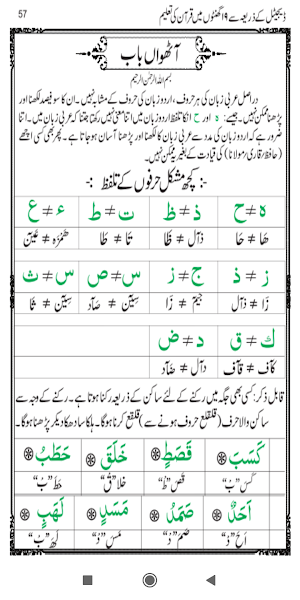 ڈیجیٹل کے ذریعہ سے ۱۹ گھنٹوں میں قرآن کی تعلیم
57
آٹھواں باب
بسم اللہ الرحمن الرحیم
دراصل عربی زبان کی ہر حروف، اردو زبان کی حروف کے مشابہ نہیں۔ ان کا سو فیصد لکھنا اور
پڑھنا ممکن نہیں۔ جیسے: ہ اور ح انکا تلفظ اردو زبان میں اتنا معنی نہیں رکھتا جتنا کہ عربی زبان میں۔ اتنا
ضرور ہے کہ اردو زبان کی مدد سے عربی زبان کا لکھنا اور پڑھنا آسان ہو جاتا ہے۔ پھر بھی کسی اچھے
(حافظ/قاری/مولانا) کی قیادت کے بغیر یہ ممکن نہیں۔
کچھ مشکل حرفوں کے تلفظ
ہ ≠ ح ذ ≠ ظ ت ≠ ط ء ≠ ع
ھَا ≠ حَا ذآل ≠ ظَا تَا ≠ طَا ھَمْزَہ ≠ عَیْنْ
ز ≠ ذ ج ≠ ز س ≠ ص س ≠ ث
زَا ≠ ذآل جِیْمْ ≠ زَا سِیْنْ ≠ صٓاد سِیْنْ ≠ ثَا
ك ≠ ق د ≠ ض
کآف ≠ قآف دآل ≠ ضٓاد
قابل ذکر: کسی بھی جگہ میں رکنے کے لئے ساکن کے ذریعہ رکنا ہوتا ہے۔ رکنے کے وجہ سے
ساکن والا حرف (قلقلع حروف ہونے سے) قلقلع کرنا ہوگا۔ ہلکا سا دھکا دیکر پڑھنا ہوگا۔
كَسَبَ ۞ قَصَطٍ ۞ خَلَقَ ۞ حَطَبُ ۞
كَسَ "بْ" قَصَ "طْ" خَلَا "قْ" حَطَ "بْ"
اَحَدٌ ۞ صَمَدُ ۞ مَسَدٍ ۞ لَهَبٍ ۞
اَحَ "دْ" صَمَ "دْ" مَسَ "دْ" لَهَ "بْ"